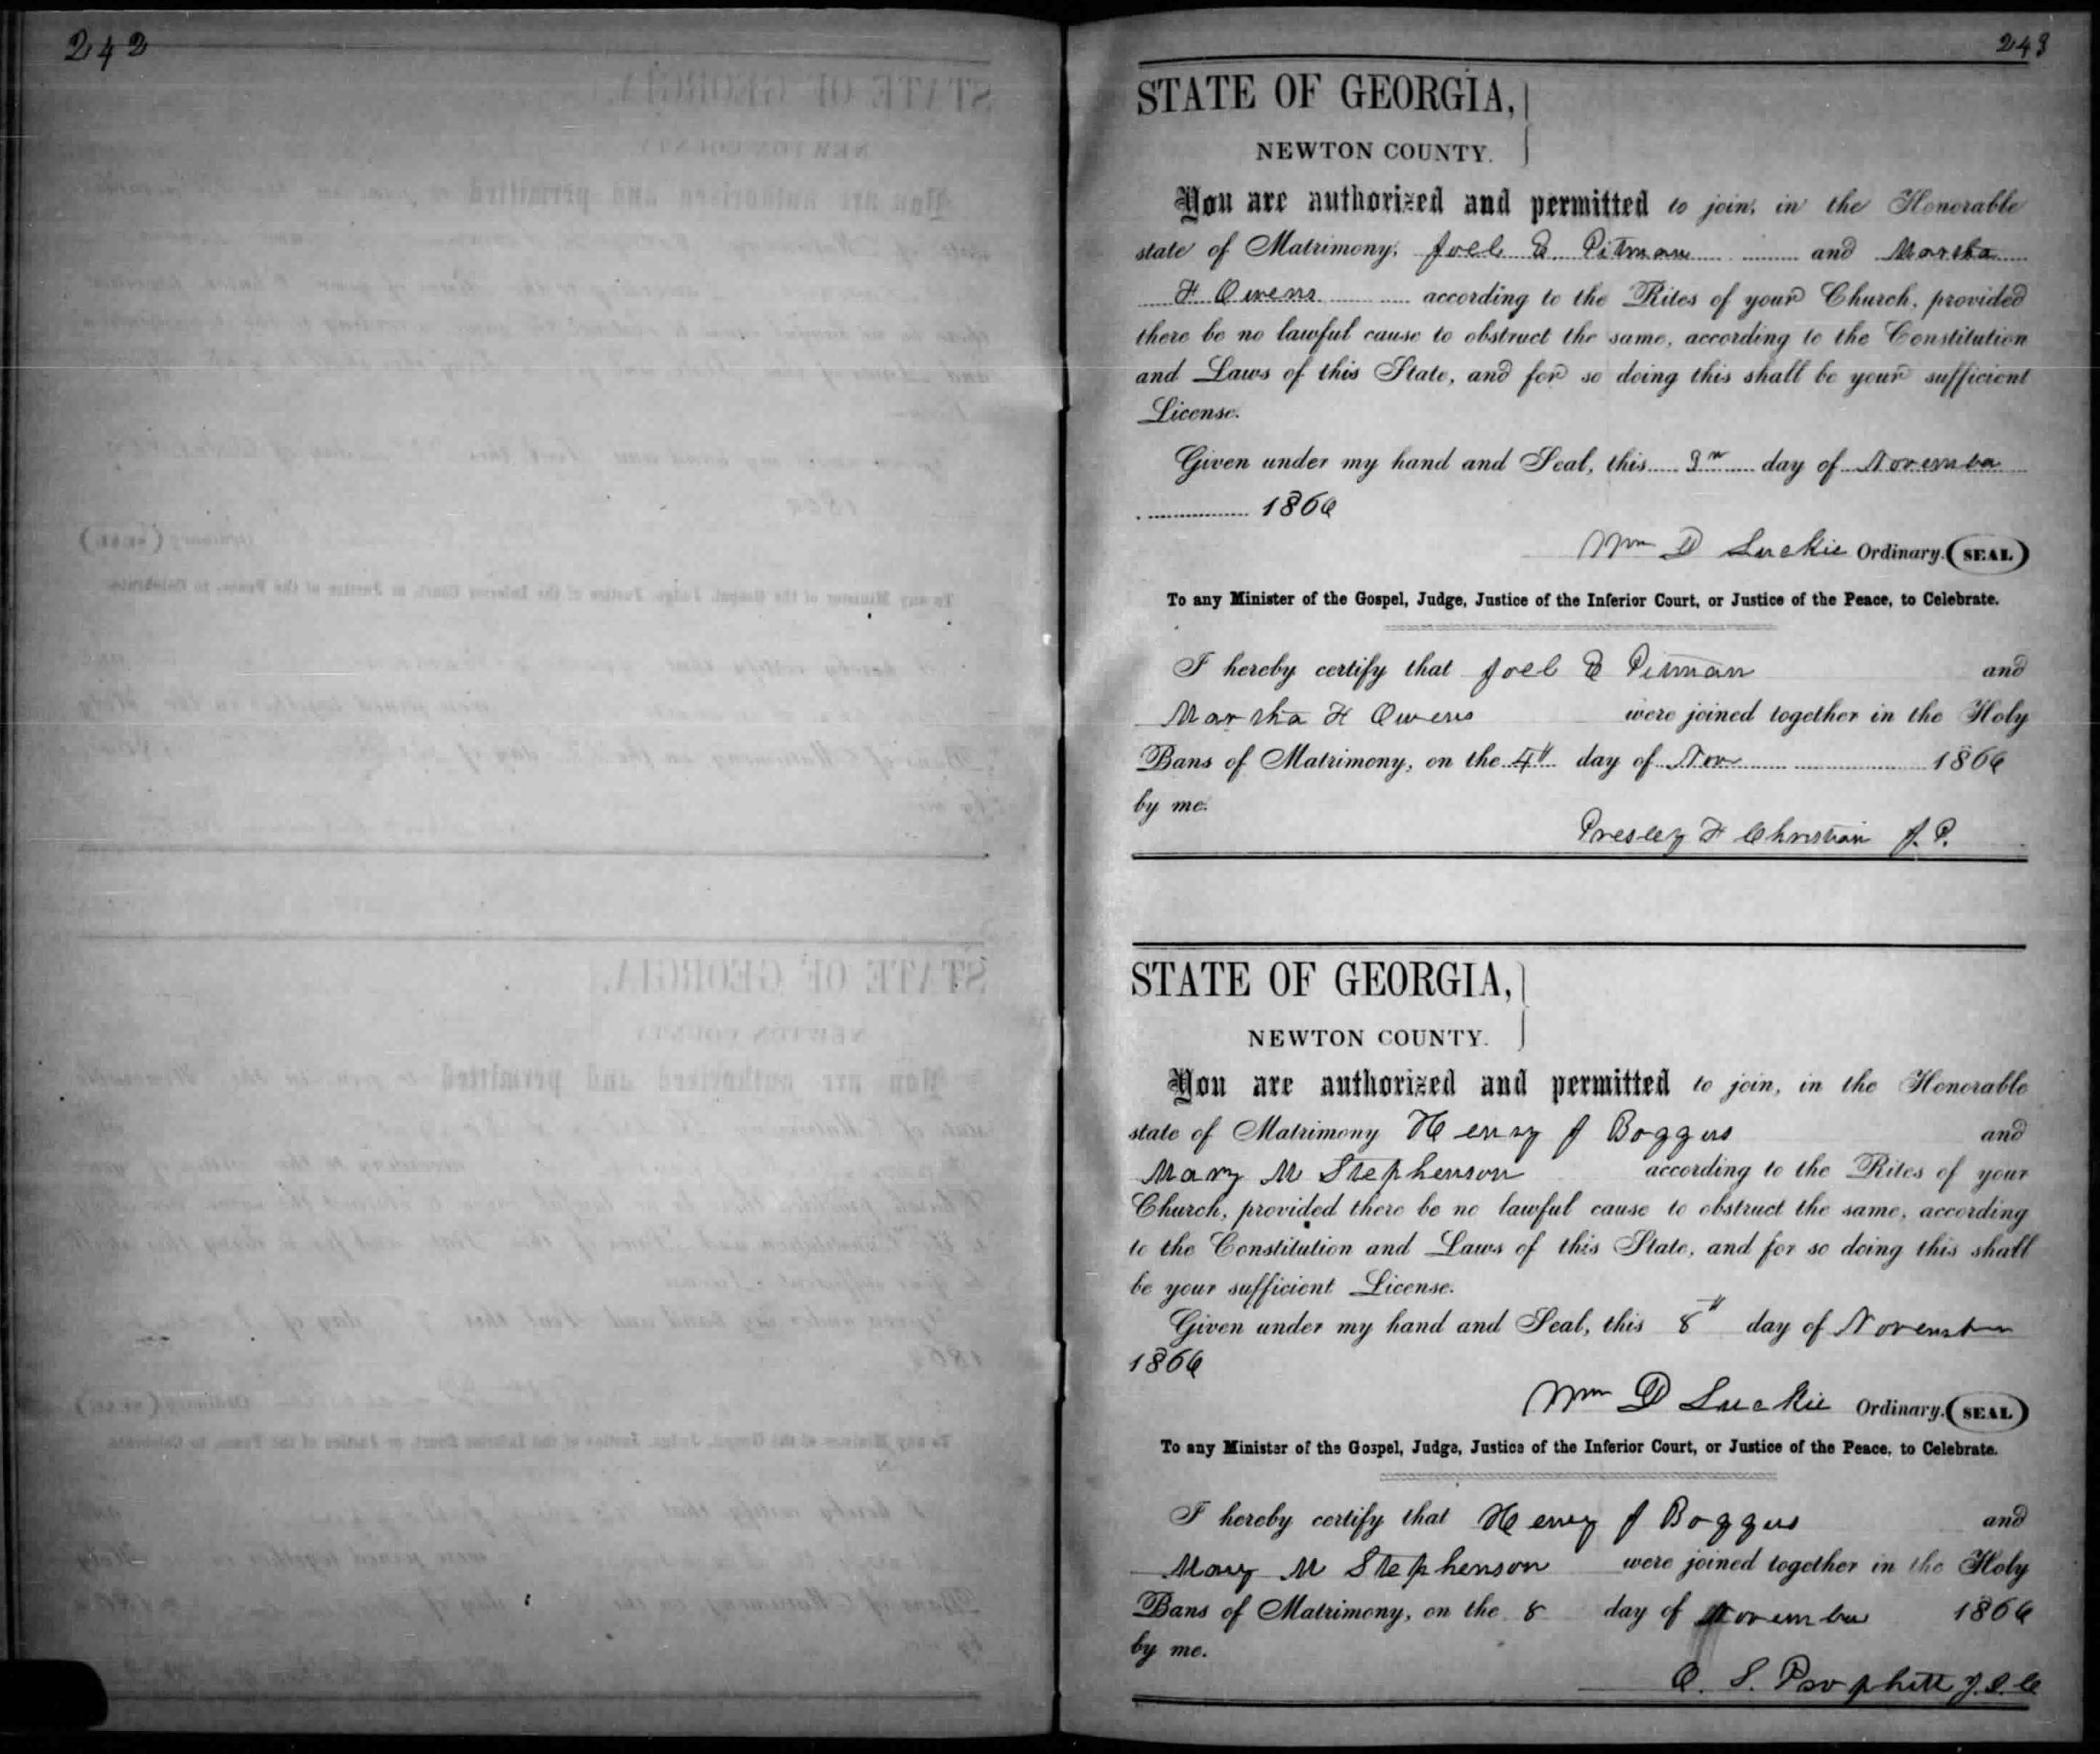 242
243
STATE OF GEORGIA,
NEWTON COUNTY.
You are authorized and permitted to join, in the Honorable
state of Matrimony, Joel E. Pitman and Martha
H Owens according to the Rites of your Church, provided
there be no lawful cause to obstruct the same, according to the Constitution
and Laws of this State, and for so doing this shall be your sufficient
License.
Given under my hand and Seal, this 3rd day of November
1866
Wm D Luckie Ordinary. (SEAL)
To any Minister of the Gospel, Judge, Justice of the Inferior Court, or Justice of the Peace, to Celebrate.
I hereby certify that Joel E Pitman and
Martha H Owens were joined together in the Holy
Bans of Matrimony, on the 4th day of Nov 1866
by me.
Presley H Christian J. P.
STATE OF GEORGIA,
NEWTON COUNTY.
You are authorized and permitted to join, in the Honorable
state of Matrimony Henry J Boggus and
Mary M Stephenson according to the Rites of your
Church, provided there be no lawful cause to obstruct the same, according
to the Constitution and Laws of this State, and for so doing this shall
be your sufficient License.
Given under my hand and Seal, this 8th day of November
1866
Wm D Luckie Ordinary. (SEAL)
To any Minister of the Gospel, Judge, Justice of the Inferior Court, or Justice of the Peace, to Celebrate.
I hereby certify that Henry J Boggus and
Mary M Stephenson were joined together in the Holy
Bans of Matrimony, on the 8 day of November 1866
by me.
O. S. Prophitt J. I. C